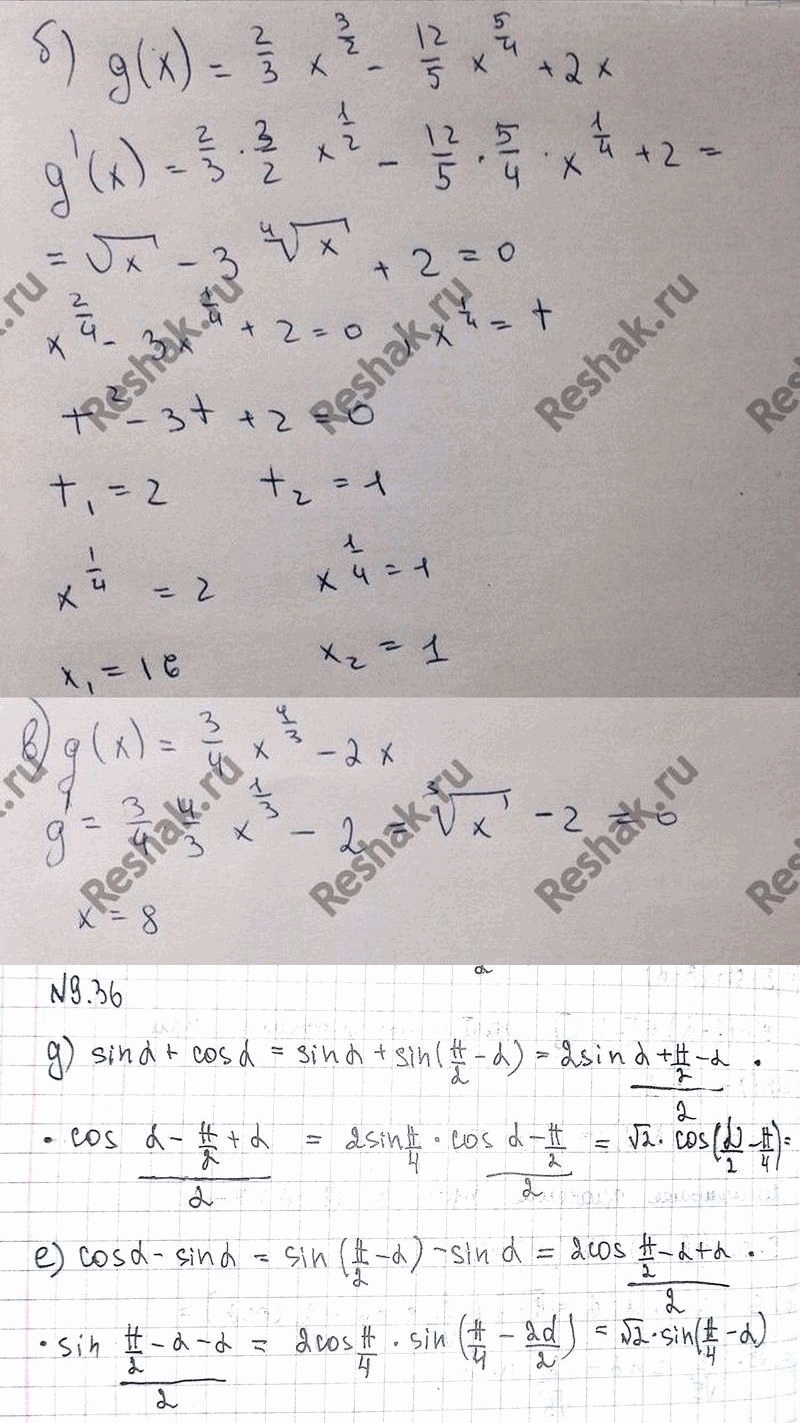 б) g(x) = 2/3 x^(3/2) - 12/5 x^(5/4) + 2x
g'(x) = 2/3 · 3/2 x^(1/2) - 12/5 · 5/4 · x^(1/4) + 2 =
= √x - 3 ⁴√x + 2 = 0
x^(2/4) - 3x^(1/4) + 2 = 0 , x^(1/4) = t
t² - 3t + 2 = 0
t₁ = 2 t₂ = 1
x^(1/4) = 2 x^(1/4) = 1
x₁ = 16 x₂ = 1
в) g(x) = 3/4 x^(4/3) - 2x
g' = 3/4 4/3 x^(1/3) - 2 = ³√x - 2 = 0
x = 8
N9.36
g) sin α + cos α = sin α + sin(π/2 - α) = 2 sin (α + π/2 - α)/2 ·
· cos (α - π/2 + α)/2 = 2 sin π/4 · cos (α - π/2)/2 = √2 · cos(α/2 - π/4) =
е) cos α - sin α = sin (π/2 - α) - sin α = 2 cos (π/2 - α + α)/2 ·
· sin (π/2 - α - α)/2 = 2 cos π/4 · sin (π/4 - 2α/2) = √2 · sin(π/4 - α)
Reshak.ru